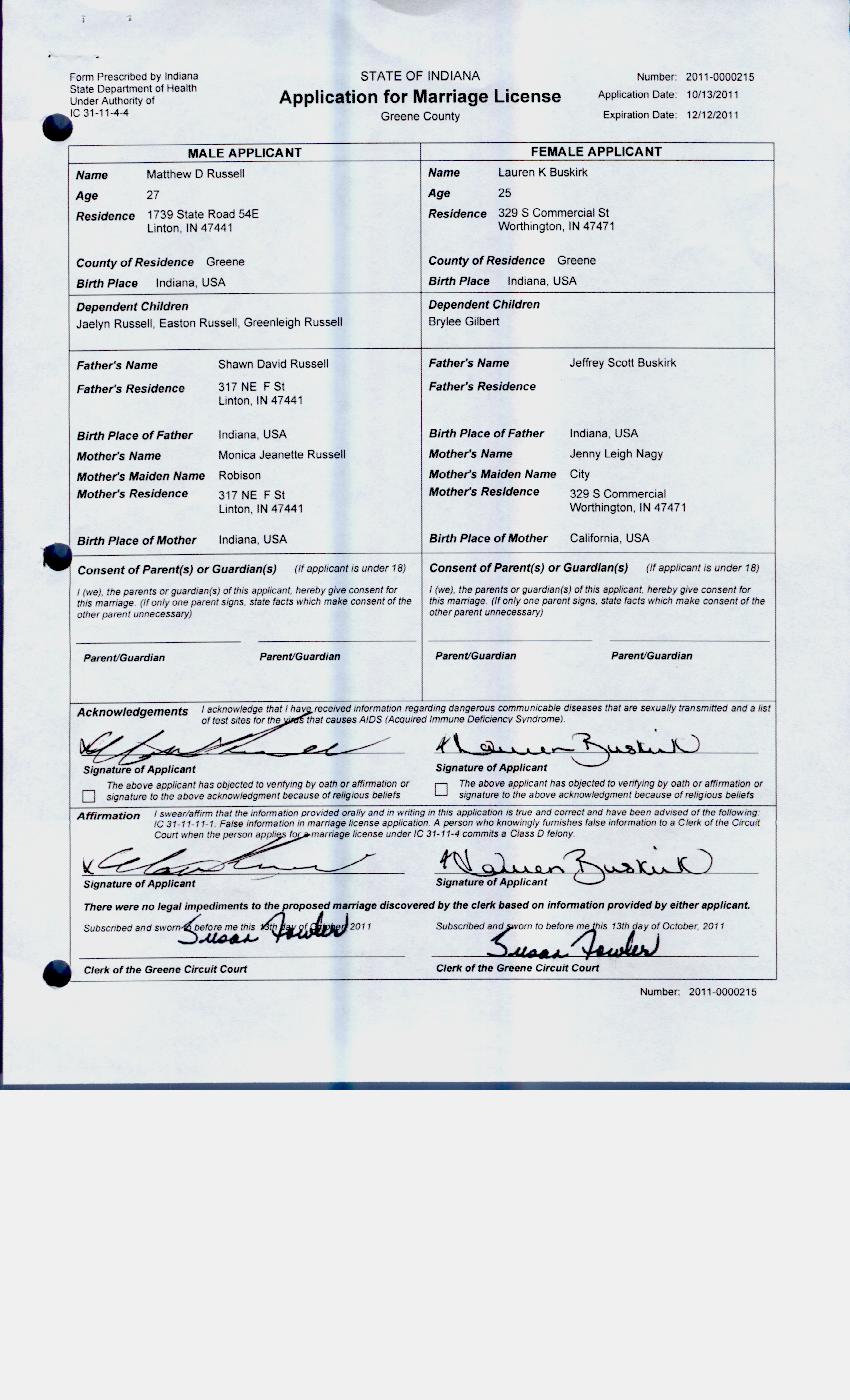 Form Prescribed by Indiana
State Department of Health
Under Authority of
IC 31-11-4-4
STATE OF INDIANA
Application for Marriage License
Greene County
Number: 2011-0000215
Application Date: 10/13/2011
Expiration Date: 12/12/2011
MALE APPLICANT
Name Matthew D Russell
Age 27
Residence 1739 State Road 54E
Linton, IN 47441
County of Residence Greene
Birth Place Indiana, USA
Dependent Children
Jaelyn Russell, Easton Russell, Greenleigh Russell
Father's Name Shawn David Russell
Father's Residence 317 NE F St
Linton, IN 47441
Birth Place of Father Indiana, USA
Mother's Name Monica Jeanette Russell
Mother's Maiden Name Robison
Mother's Residence 317 NE F St
Linton, IN 47441
Birth Place of Mother Indiana, USA
Consent of Parent(s) or Guardian(s) (If applicant is under 18)
I (we), the parents or guardian(s) of this applicant, hereby give consent for
this marriage. (If only one parent signs, state facts which make consent of the
other parent unnecessary)
Parent/Guardian Parent/Guardian
FEMALE APPLICANT
Name Lauren K Buskirk
Age 25
Residence 329 S Commercial St
Worthington, IN 47471
County of Residence Greene
Birth Place Indiana, USA
Dependent Children
Brylee Gilbert
Father's Name Jeffrey Scott Buskirk
Father's Residence
Birth Place of Father Indiana, USA
Mother's Name Jenny Leigh Nagy
Mother's Maiden Name City
Mother's Residence 329 S Commercial
Worthington, IN 47471
Birth Place of Mother California, USA
Consent of Parent(s) or Guardian(s) (If applicant is under 18)
I (we), the parents or guardian(s) of this applicant, hereby give consent for
this marriage. (If only one parent signs, state facts which make consent of the
other parent unnecessary)
Parent/Guardian Parent/Guardian
Acknowledgements I acknowledge that I have received information regarding dangerous communicable diseases that are sexually transmitted and a list
of test sites for the virus that causes AIDS (Acquired Immune Deficiency Syndrome).
Lauren Buskirk
Signature of Applicant Signature of Applicant
The above applicant has objected to verifying by oath or affirmation or
signature to the above acknowledgment because of religious beliefs
The above applicant has objected to verifying by oath or affirmation or
signature to the above acknowledgment because of religious beliefs
Affirmation I swear/affirm that the information provided orally and in writing in this application is true and correct and have been advised of the following:
IC 31-11-11-1. False information in marriage license application. A person who knowingly furnishes false information to a Clerk of the Circuit
Court when the person applies for a marriage license under IC 31-11-4 commits a Class D felony.
Lauren Buskirk
Signature of Applicant Signature of Applicant
There were no legal impediments to the proposed marriage discovered by the clerk based on information provided by either applicant.
Subscribed and sworn to before me this 13th day of October, 2011 Subscribed and sworn to before me this 13th day of October, 2011
Susan Fowler Susan Fowler
Clerk of the Greene Circuit Court Clerk of the Greene Circuit Court
Number: 2011-0000215